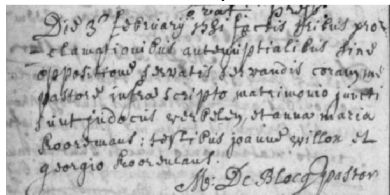 Die 3ᵃ february 1781 factis tribus pro-
clamationibus antenuptialibus sine
oppositione servatis servandis coram me
pastore infrascripto matrimonio juncti
sunt judocus werbelen et anna maria
Kooremans: testibus joanne willox et
georgio Kooremans.
M: De Blocq pastor